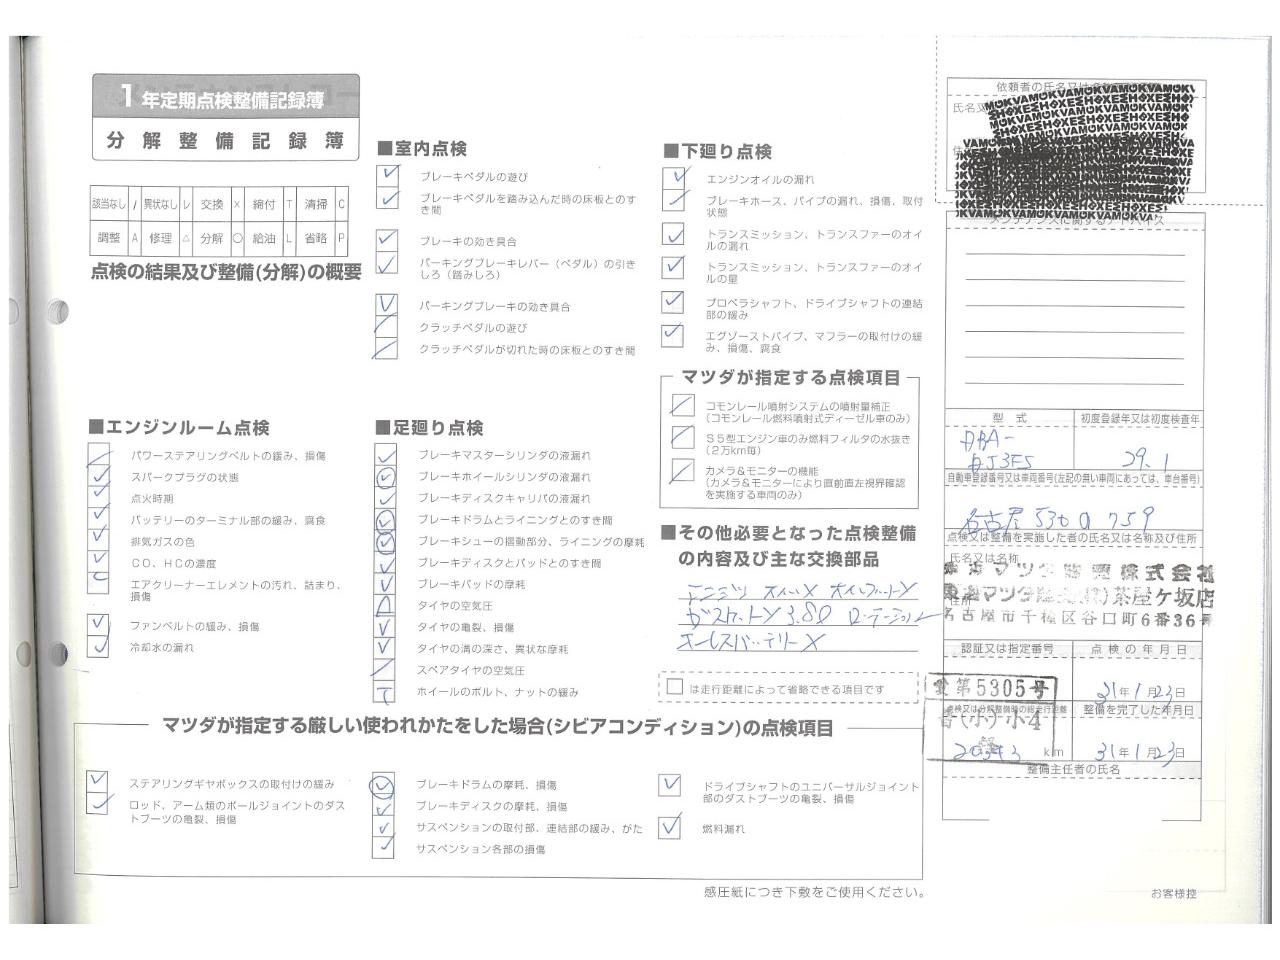 1年定期点検整備記録簿
分解整備記録簿
該当なし / 異状なし レ 交換 × 締付 T 清掃 C
調整 A 修理 △ 分解 ○ 給油 L 省略 P
点検の結果及び整備(分解)の概要
■エンジンルーム点検
パワーステアリングベルトの緩み、損傷
スパークプラグの状態
点火時期
バッテリーのターミナル部の緩み、腐食
排気ガスの色
CO、HCの濃度
エアクリーナーエレメントの汚れ、詰まり、
損傷
ファンベルトの緩み、損傷
冷却水の漏れ
■室内点検
ブレーキペダルの遊び
ブレーキペダルを踏み込んだ時の床板とのす
き間
ブレーキの効き具合
パーキングブレーキレバー（ペダル）の引き
しろ（踏みしろ）
パーキングブレーキの効き具合
クラッチペダルの遊び
クラッチペダルが切れた時の床板とのすき間
■足廻り点検
ブレーキマスターシリンダの液漏れ
ブレーキホイールシリンダの液漏れ
ブレーキディスクキャリパの液漏れ
ブレーキドラムとライニングとのすき間
ブレーキシューの摺動部分、ライニングの摩耗
ブレーキディスクとパッドとのすき間
ブレーキパッドの摩耗
タイヤの空気圧
タイヤの亀裂、損傷
タイヤの溝の深さ、異状な摩耗
スペアタイヤの空気圧
ホイールのボルト、ナットの緩み
■下廻り点検
エンジンオイルの漏れ
ブレーキホース、パイプの漏れ、損傷、取付
状態
トランスミッション、トランスファーのオイ
ルの漏れ
トランスミッション、トランスファーのオイ
ルの量
プロペラシャフト、ドライブシャフトの連結
部の緩み
エグゾーストパイプ、マフラーの取付けの緩
み、損傷、腐食
マツダが指定する点検項目
コモンレール噴射システムの噴射量補正
（コモンレール燃料噴射式ディーゼル車のみ）
S5型エンジン車のみ燃料フィルタの水抜き
（2万km毎）
カメラ＆モニターの機能
（カメラ＆モニターにより直前直左視界確認
を実施する車両のみ）
■その他必要となった点検整備
の内容及び主な交換部品
3.8ℓ
□は走行距離によって省略できる項目です
マツダが指定する厳しい使われかたをした場合(シビアコンディション)の点検項目
ステアリングギヤボックスの取付けの緩み
ロッド、アーム類のボールジョイントのダス
トブーツの亀裂、損傷
ブレーキドラムの摩耗、損傷
ブレーキディスクの摩耗、損傷
サスペンションの取付部、連結部の緩み、がた
サスペンション各部の損傷
ドライブシャフトのユニバーサルジョイント
部のダストブーツの亀裂、損傷
燃料漏れ
感圧紙につき下敷をご使用ください。
依頼者の氏名又は
氏名又
メンテナンスに関するアドバイス
型式
初度登録年又は初度検査年
DBA-
DJ3FS
29.1
自動車登録番号又は車両番号(左記の無い車両にあっては、車台番号)
名古屋 530 759
点検又は整備を実施した者の氏名又は名称及び住所
氏名又は名称
東海マツダ販売株式会社
東海マツダ販売(株)茶屋ケ坂店
住所
名古屋市千種区谷口町6番36号
認証又は指定番号
点検の年月日
愛第5305号
31年1月23日
点検又は分解整備時の総走行距離
整備を完了した年月日
km
31年1月23日
整備主任者の氏名
お客様控